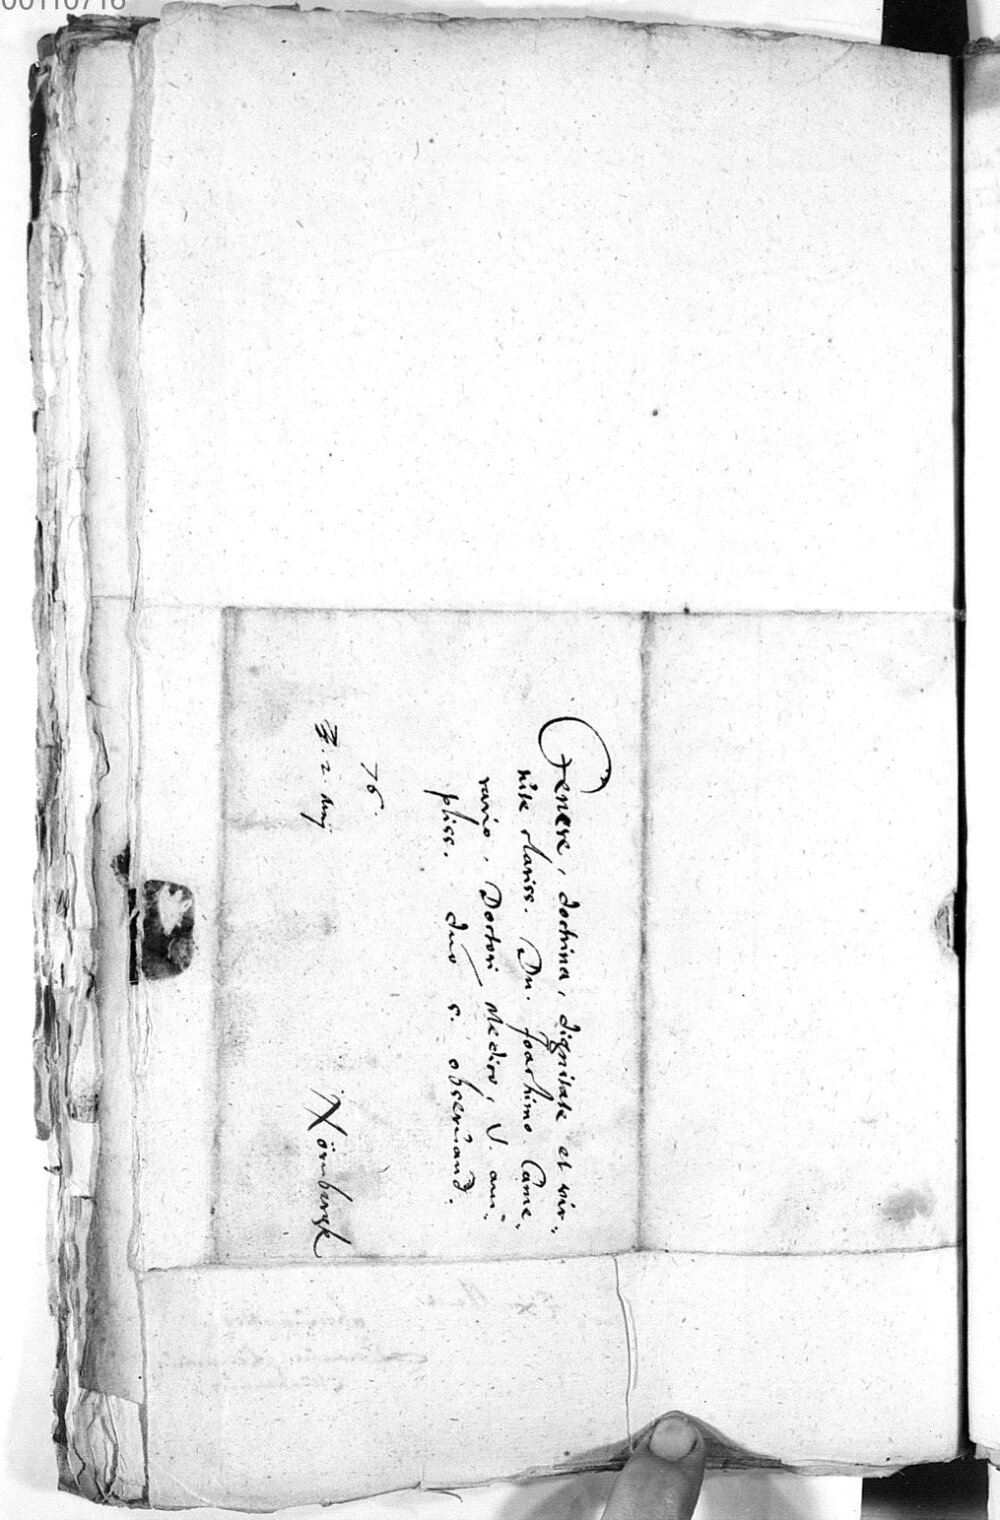 00110716
Genere, doctrina, dignitate et vir-
tute clariss. Dn. Joachimo Came-
rario, Doctori Medico, V. am-
pliss. dno s. observand.
76.
Z. 2. Maij
Nörnbergk